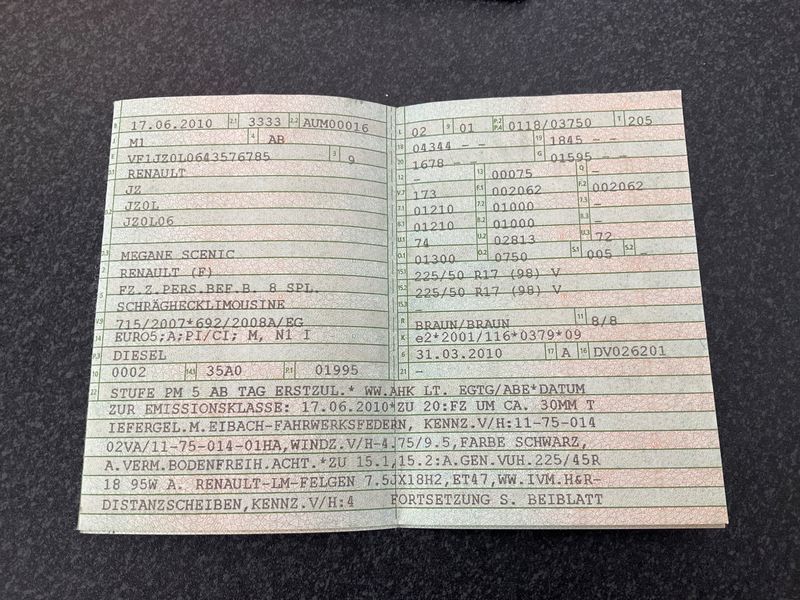 B 17.06.2010 2.1 3333 2.2 AUM00016
J M1 4 AB
E VF1JZ0L0643576785 3 9
D.1 RENAULT
JZ
D.2 JZ0L
JZ0L06
D.3 MEGANE SCENIC
2 RENAULT (F)
5 FZ.Z.PERS.BEF.B. 8 SPL.
SCHRÄGHECKLIMOUSINE
V.9 715/2007*692/2008A/EG
14 EURO5;A;PI/CI; M, N1 I
P.3 DIESEL
10 0002 14.1 35A0 P.1 01995
L 02 9 01 P.2 P.4 0118/03750 T 205
18 04344 – – 19 1845 – –
20 1678 – – G 01595 – –
12 – 13 00075 Q –
V.7 173 F.1 002062 F.2 002062
7.1 01210 7.2 01000 7.3 –
8.1 01210 8.2 01000 8.3 –
U.1 74 U.2 02813 U.3 72
O.1 01300 O.2 0750 S.1 005 S.2 –
15.1 225/50 R17 (98) V
15.2 225/50 R17 (98) V
15.3 –
R BRAUN/BRAUN 11 8/8
K e2*2001/116*0379*09
6 31.03.2010 17 A 16 DV026201
21 –
22 STUFE PM 5 AB TAG ERSTZUL.* WW.AHK LT. EGTG/ABE*DATUM
ZUR EMISSIONSKLASSE: 17.06.2010*ZU 20:FZ UM CA. 30MM T
IEFERGEL.M.EIBACH-FAHRWERKSFEDERN, KENNZ.V/H:11-75-014
02VA/11-75-014-01HA,WINDZ.V/H-4.75/9.5,FARBE SCHWARZ,
A.VERM.BODENFREIH.ACHT.*ZU 15.1,15.2:A.GEN.VUH.225/45R
18 95W A. RENAULT-LM-FELGEN 7.5JX18H2,ET47,WW.IVM.H&R-
DISTANZSCHEIBEN,KENNZ.V/H:4 FORTSETZUNG S. BEIBLATT